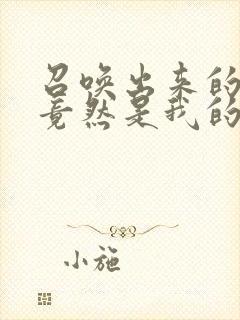 召唤出来的
竟然是我的
小施